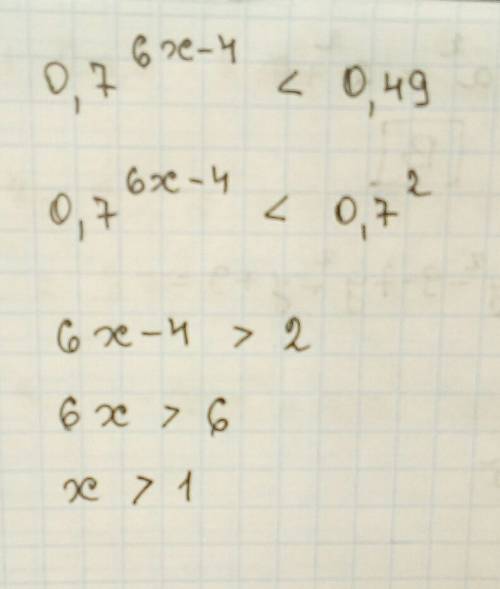 0,7^{6x-4} < 0,49
0,7^{6x-4} < 0,7^2
6x-4 > 2
6x > 6
x > 1